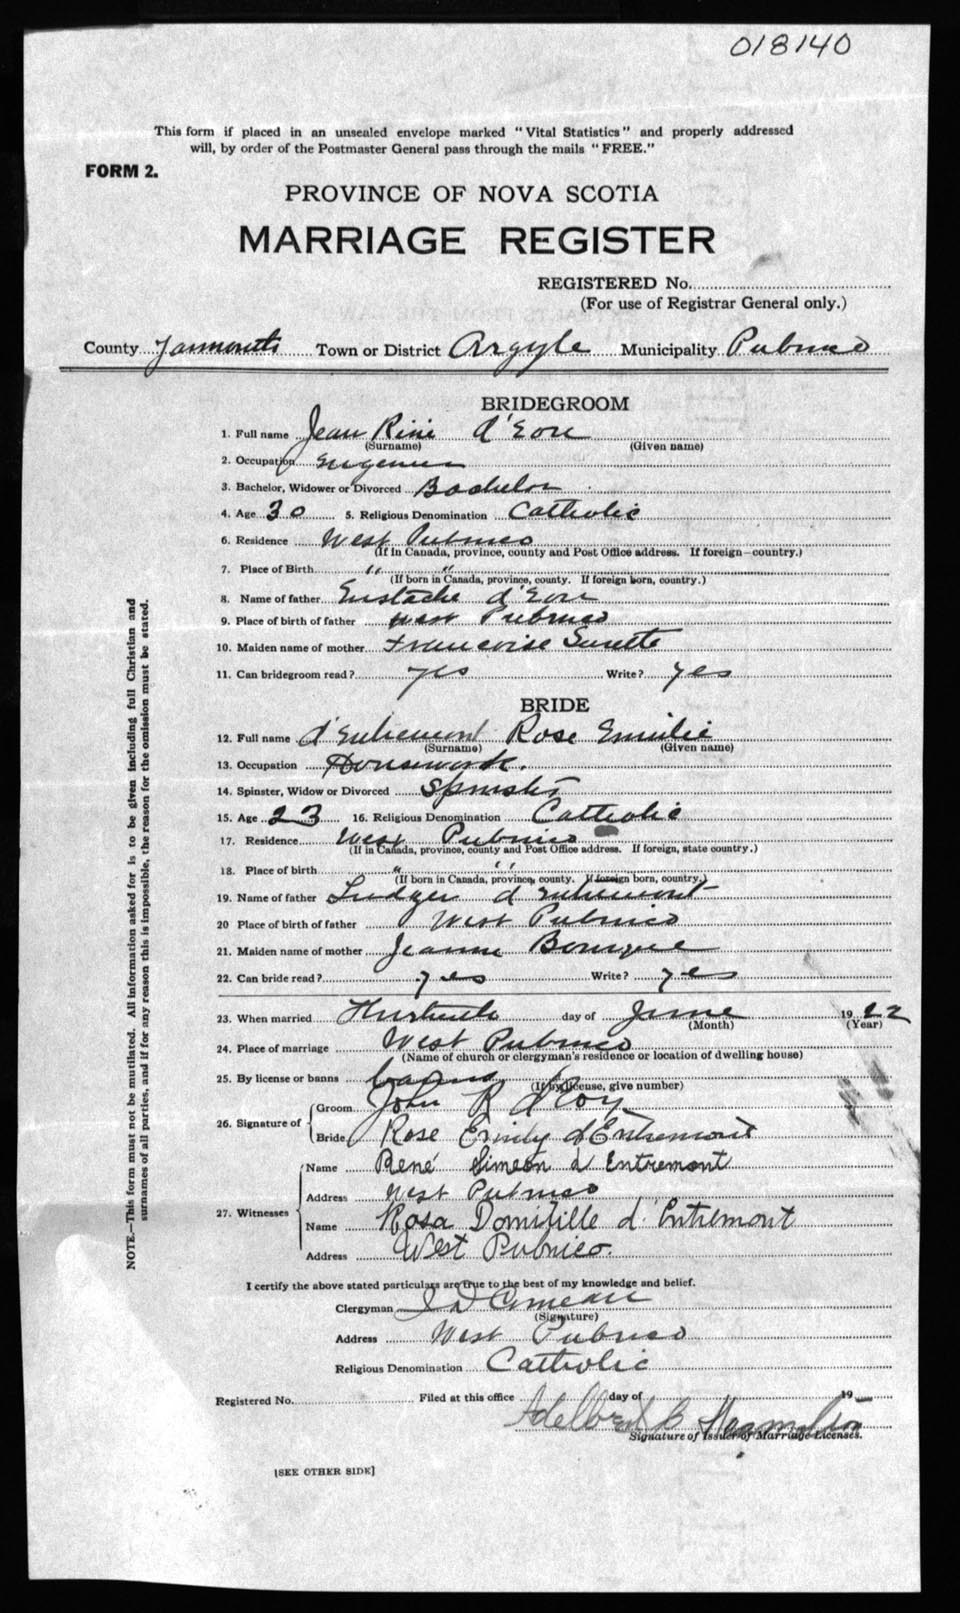 018140
This form if placed in an unsealed envelope marked "Vital Statistics" and properly addressed
will, by order of the Postmaster General pass through the mails "FREE."
FORM 2.
PROVINCE OF NOVA SCOTIA
MARRIAGE REGISTER
REGISTERED No.
(For use of Registrar General only.)
County Yarmouth Town or District Argyle Municipality Pubnico
BRIDEGROOM
1. Full name Jean René d'Eon
(Surname) (Given name)
2. Occupation Engineer
3. Bachelor, Widower or Divorced Bachelor
4. Age 30 5. Religious Denomination Catholic
6. Residence West Pubnico
(If in Canada, province, county and Post Office address. If foreign—country.)
7. Place of Birth " "
(If born in Canada, province, county. If foreign born, country.)
8. Name of father Eustache d'Eon
9. Place of birth of father West Pubnico
10. Maiden name of mother Francoise Surette
11. Can bridegroom read? yes Write? yes
BRIDE
12. Full name d'Entremont Rose Emilie
(Surname) (Given name)
13. Occupation Housework.
14. Spinster, Widow or Divorced Spinster
15. Age 23 16. Religious Denomination Catholic
17. Residence West Pubnico
(If in Canada, province, county and Post Office address. If foreign, state country.)
18. Place of birth " "
(If born in Canada, province, county. If foreign born, country.)
19. Name of father Ludger d'Entremont
20 Place of birth of father West Pubnico
21. Maiden name of mother Jeanne Bourque
22. Can bride read? yes Write? yes
23. When married day of June 1922
(Month) (Year)
24. Place of marriage West Pubnico
(Name of church or clergyman's residence or location of dwelling house)
25. By license or banns banns
(If by license, give number)
26. Signature of
Groom John R
Bride Rose Emily d'Entremont
27. Witnesses
Name René Simeon d'Entremont
Address West Pubnico
Name Rosa Domitille d'Entremont
Address West Pubnico.
I certify the above stated particulars are true to the best of my knowledge and belief.
Clergyman Comeau
(Signature)
Address West Pubnico
Religious Denomination Catholic
Registered No. Filed at this office day of 19
Adelbert B
Signature of Issuer of Marriage Licenses.
[SEE OTHER SIDE]
NOTE.—This form must not be mutilated. All information asked for is to be given including full Christian and
surnames of all parties, and if for any reason this is impossible, the reason for the omission must be stated.